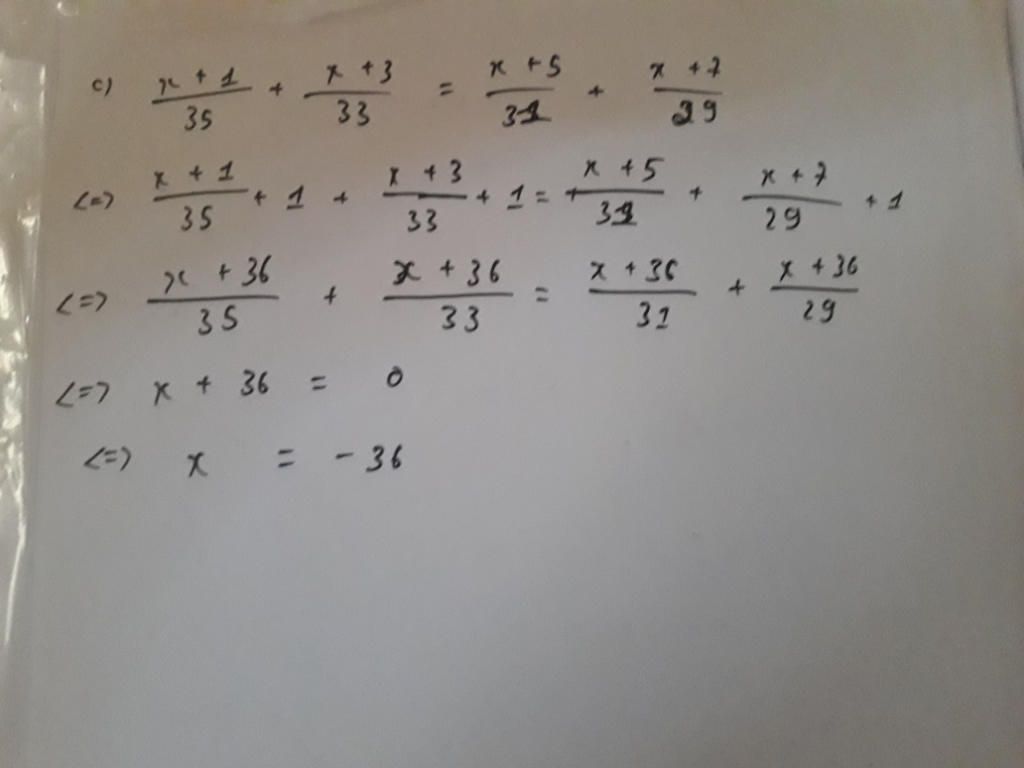 c) (x + 1)/35 + (x + 3)/33 = (x + 5)/31 + (x + 7)/29
<=> (x + 1)/35 + 1 + (x + 3)/33 + 1 = + (x + 5)/31 + (x + 7)/29 + 1
<=> (x + 36)/35 + (x + 36)/33 = (x + 36)/31 + (x + 36)/29
<=> x + 36 = 0
<=> x = - 36